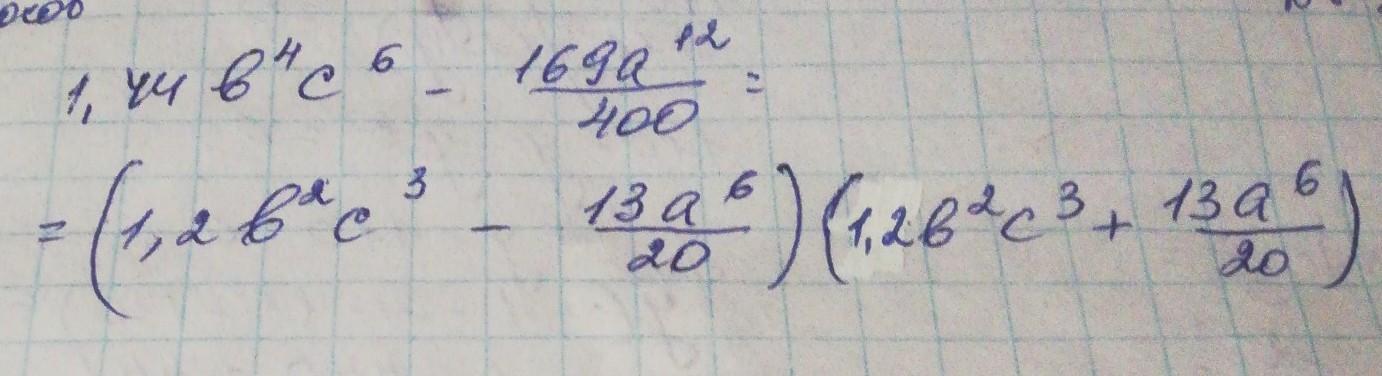 1,44 b⁴c⁶ - 169a¹²/400 =
= (1,2 b²c³ - 13a⁶/20)(1,2b²c³ + 13a⁶/20)